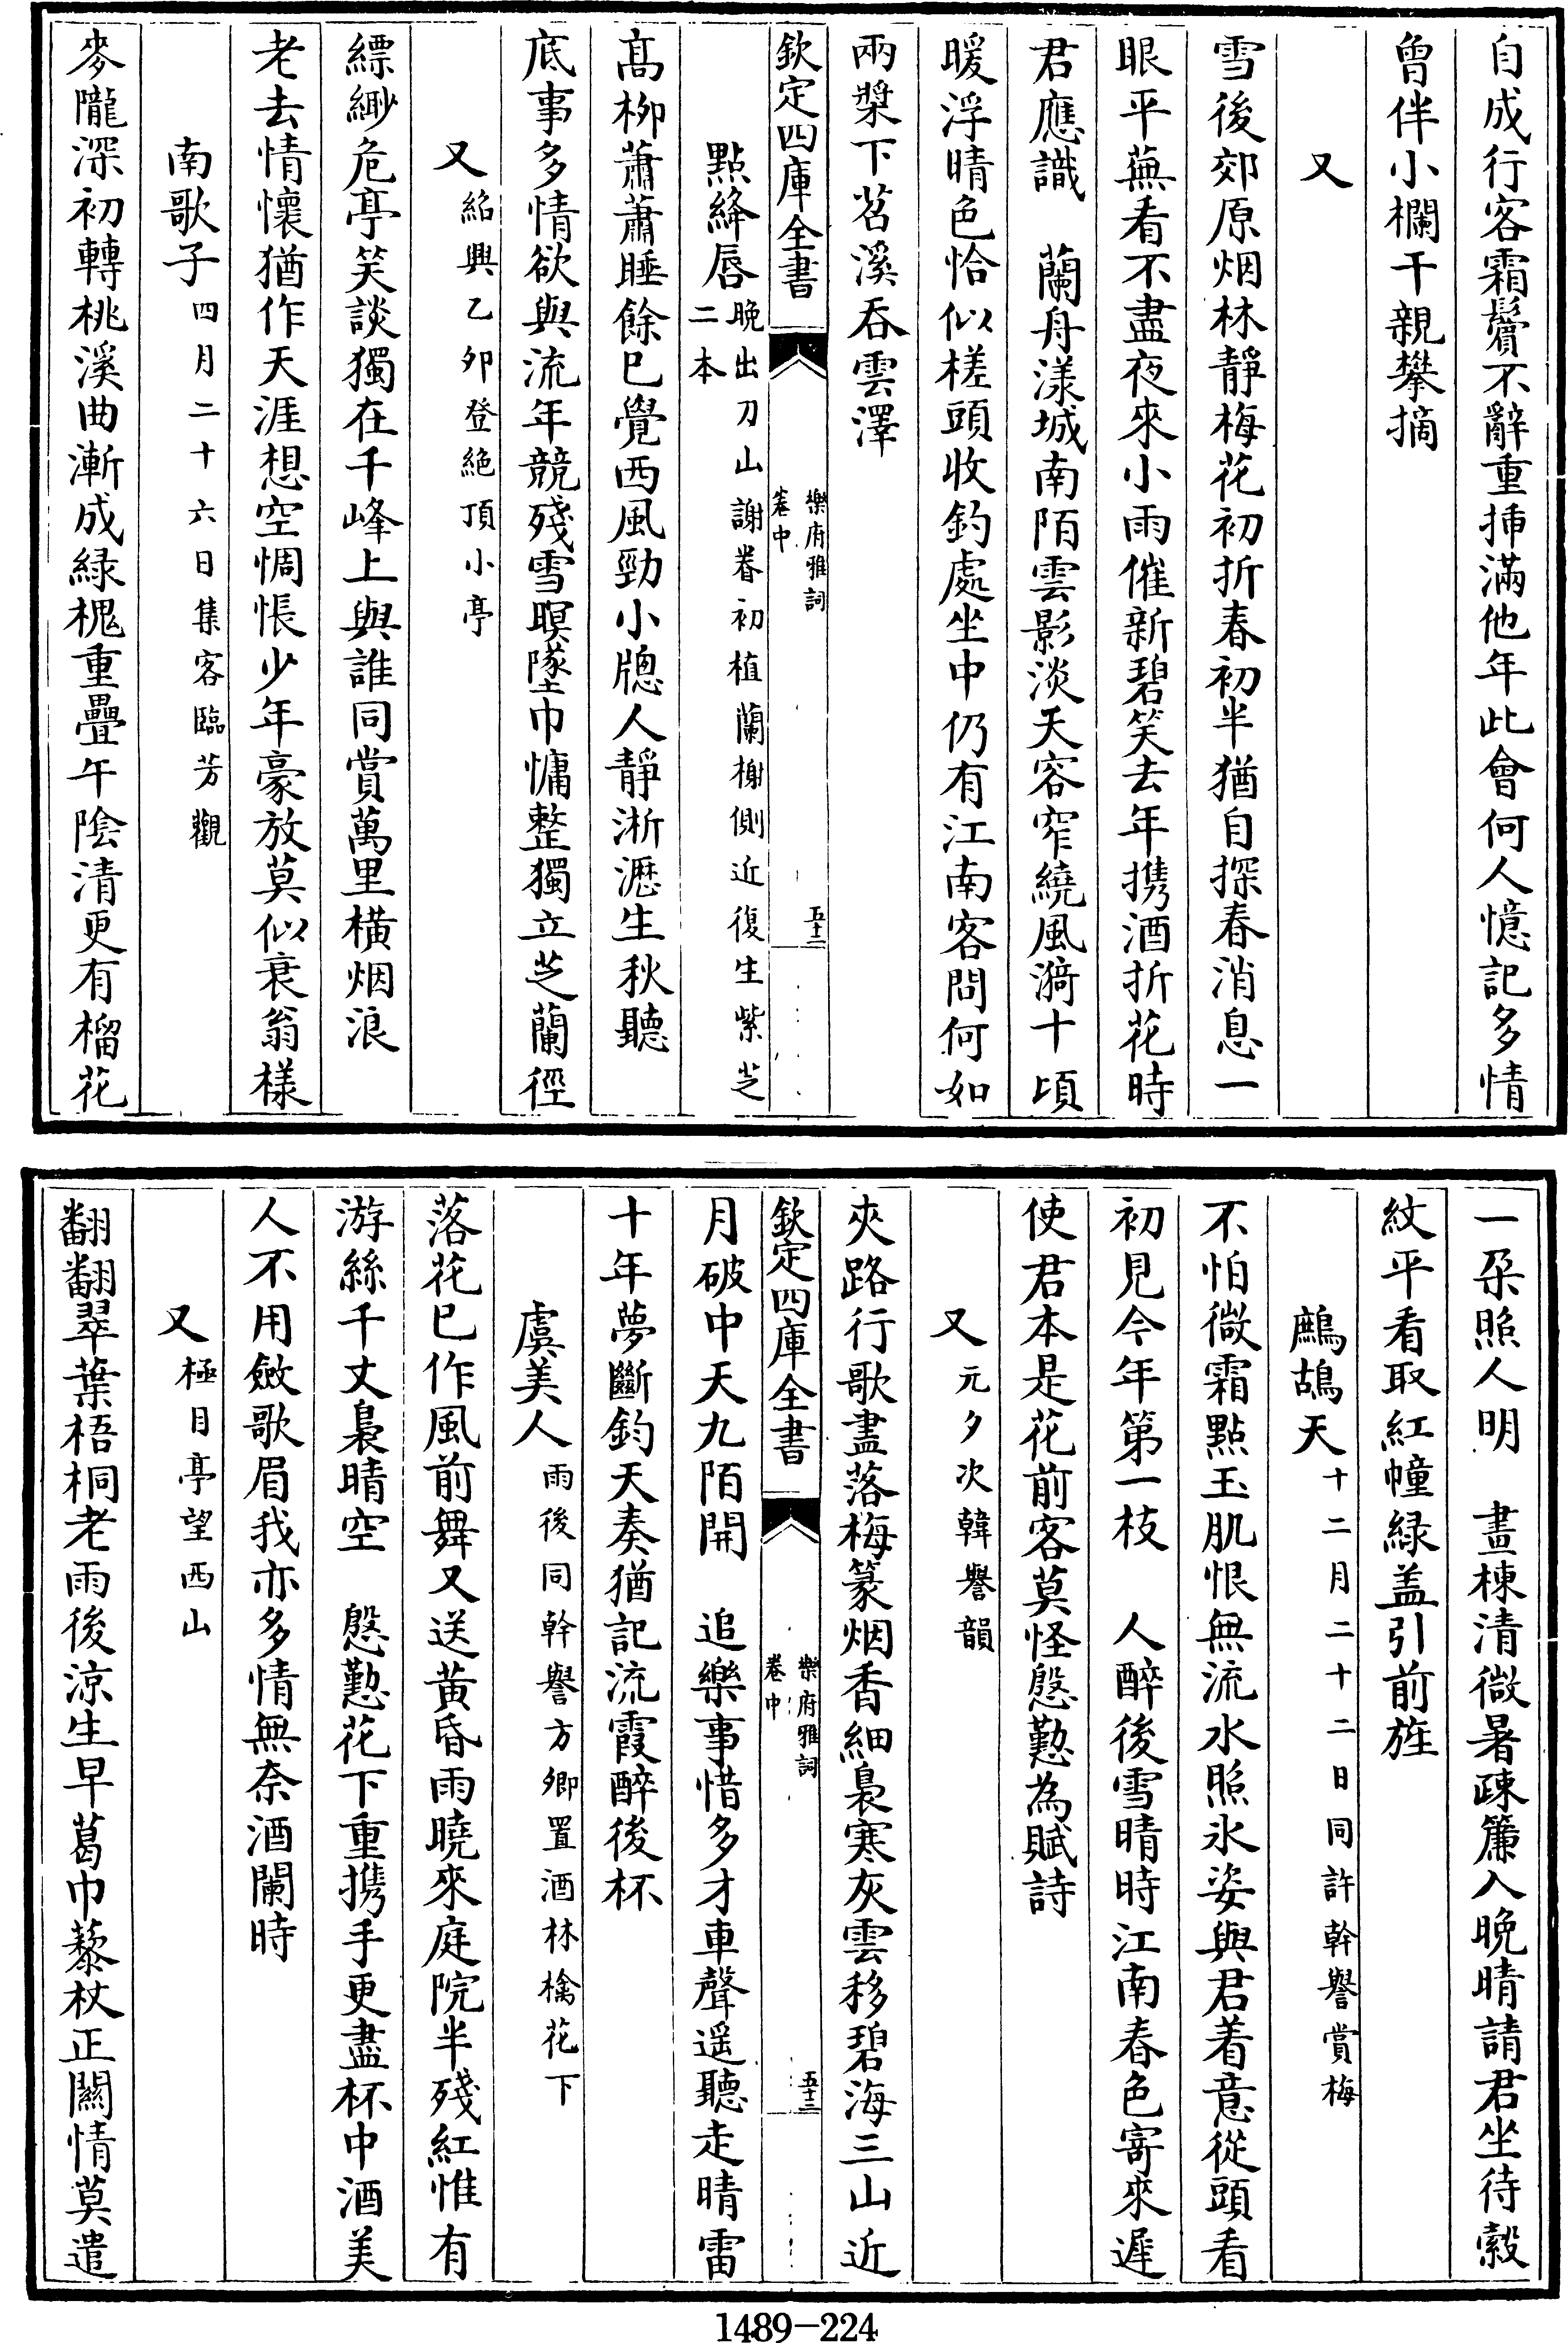 自成行客霜鬢不辭重揷滿他年此會何人憶記多情
曾伴小欄干親攀摘
又
雪後郊原烟林靜梅花初折春初半猶自探春消息一
眼平蕪看不盡夜來小雨催新碧笑去年携酒折花時
君應識　蘭舟漾城南陌雲影淡天容窄繞風漪十頃
暖浮晴色恰似槎頭收釣處坐中仍有江南客問何如
兩槳下苕溪吞雲澤
欽定四庫全書
樂府雅詞
卷中
五十二
點絳唇晚出刀山謝眷初植蘭榭側近復生紫芝
二本
髙柳蕭蕭睡餘已覺西風勁小牕人靜淅瀝生秋聽
底事多情欲與流年競殘雪暝墜巾慵整獨立芝蘭徑
又紹興乙卯登絶頂小亭
縹緲危亭笑談獨在千峰上與誰同賞萬里橫烟浪
老去情懷猶作天涯想空惆悵少年豪放莫似衰翁樣
南歌子四月二十六日集客臨芳觀
麥隴深初轉桃溪曲漸成緑槐重疊午陰清更有榴花
一朶照人明　畫棟清㣲暑疎簾入晚晴請君坐待縠
紋平看取紅幢緑盖引前旌
鷓鴣天十二月二十二日同許幹譽賞梅
不怕㣲霜點玉肌恨無流水照氷姿與君着意從頭看
初見今年第一枝　人醉後雪晴時江南春色寄來遲
使君本是花前客莫怪慇懃為賦詩
又元夕次韓譽韻
夾路行歌盡落梅篆烟香細裊寒灰雲移碧海三山近
欽定四庫全書
樂府雅詞
卷中
五十三
月破中天九陌開　追樂事惜多才車聲遥聽走晴雷
十年夢斷鈞天奏猶記流霞醉後杯
虞美人雨後同幹譽方卿置酒林檎花下
落花已作風前舞又送黄昏雨曉來庭院半殘紅惟有
游絲千丈裊晴空　慇懃花下重携手更盡杯中酒美
人不用斂歌眉我亦多情無奈酒闌時
又極目亭望西山
翻翻翠葉梧桐老雨後涼生早葛巾藜杖正關情莫遣
1489-224